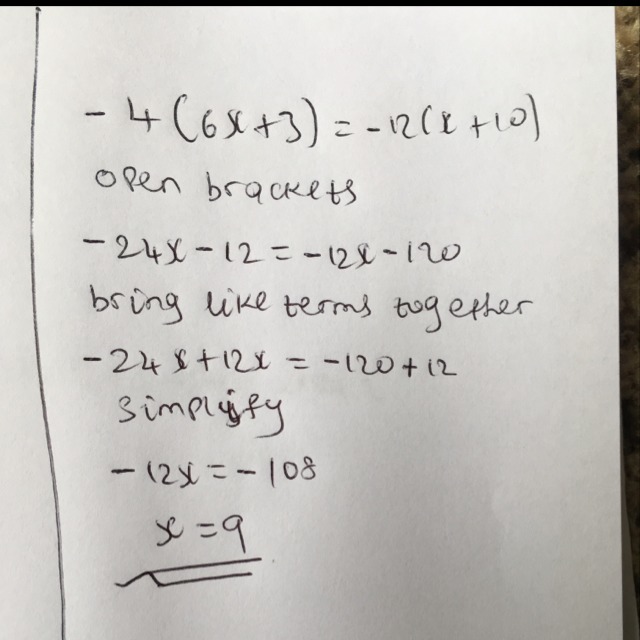 - 4(6x+3) = -12(x+10)
open brackets
-24x-12 = -12x-120
bring like terms together
-24x+12x = -120+12
simplify
-12x = -108
x = 9